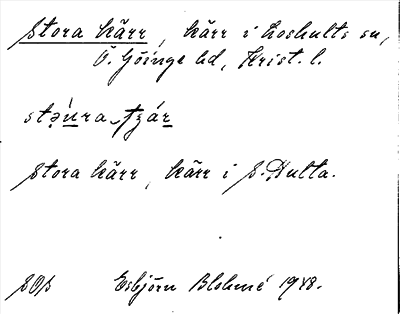 Stora kärr, kärr i Loshults sn,
Ö. Göinge hd, Krist. l.
stǝúra tʒár
Stora kärr, kärr i S. Hulta.
Esbjörn Blohmé 1948.